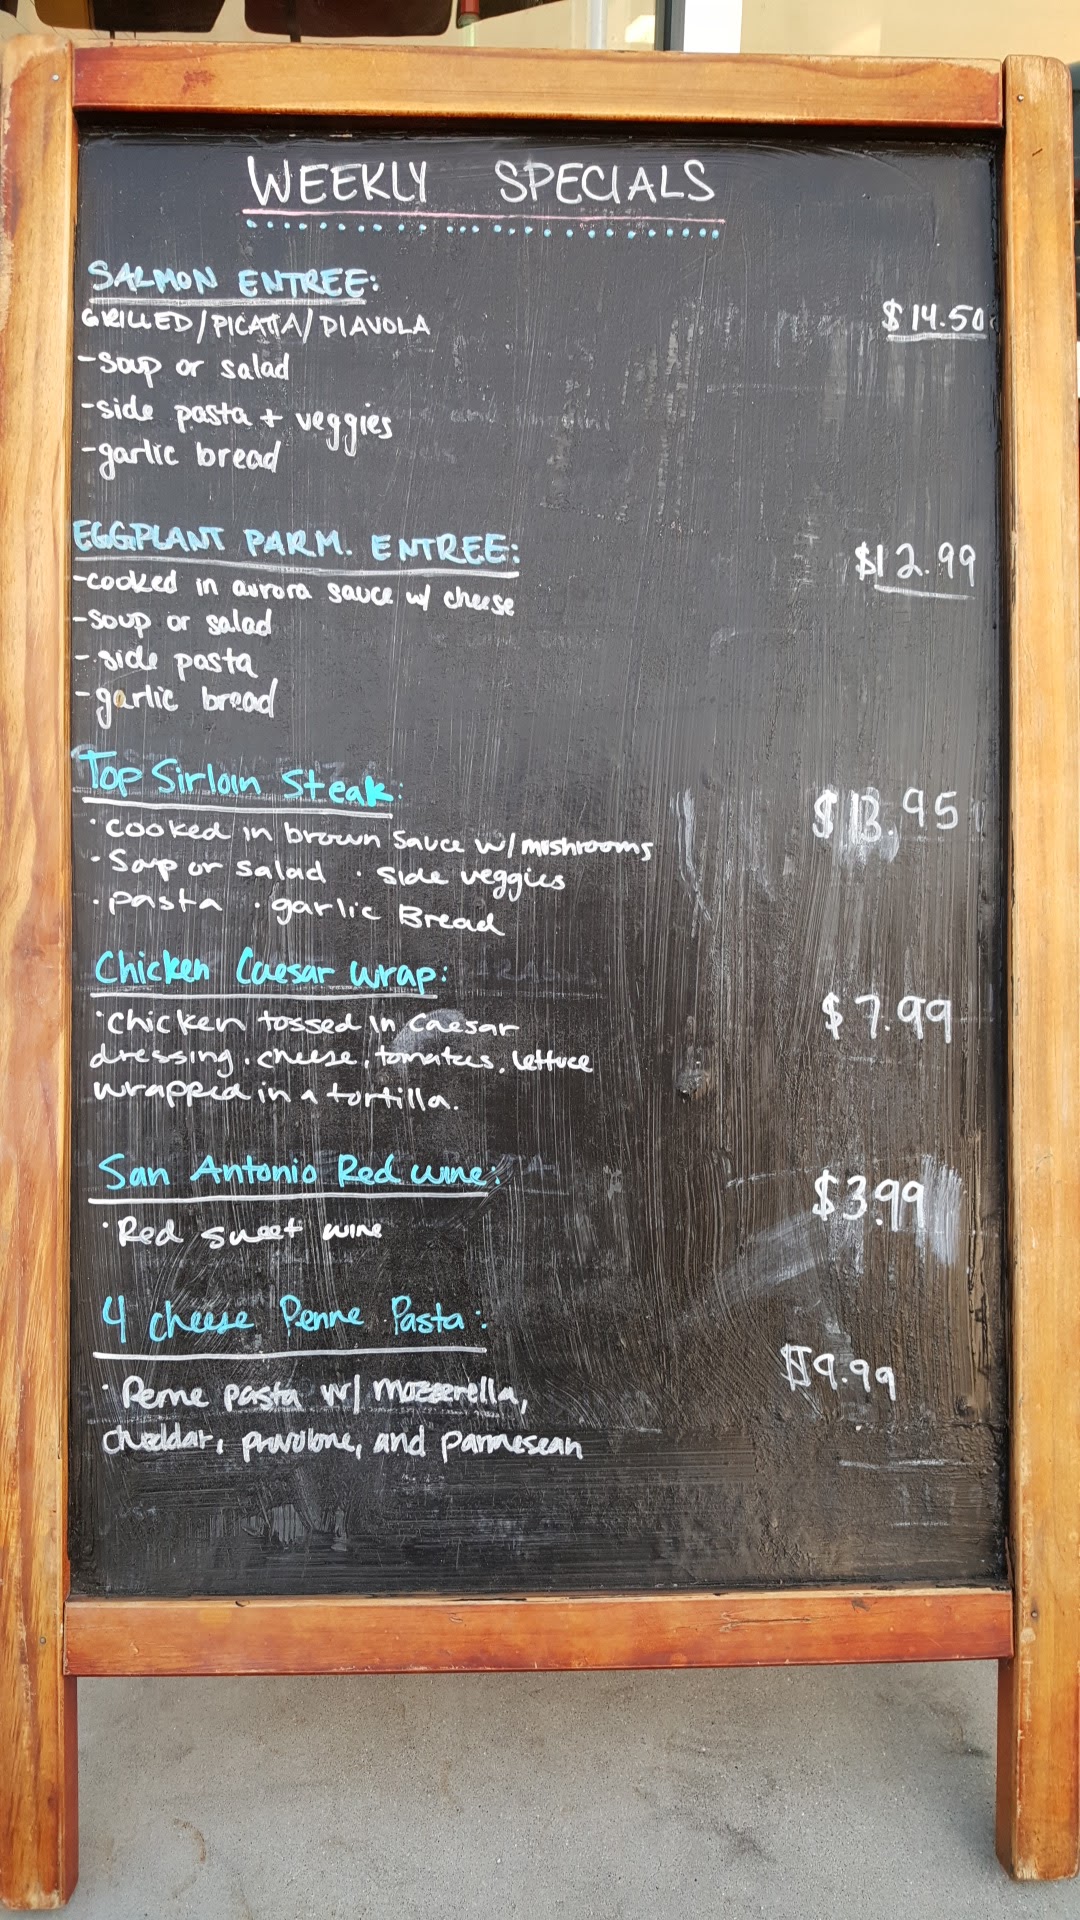 WEEKLY SPECIALS
SALMON ENTREE:
GRILLED/PICATTA/DIAVOLA $14.50
-soup or salad
-side pasta + veggies
-garlic bread
EGGPLANT PARM. ENTREE:
$12.99
-cooked in aurora sauce w/ cheese
-soup or salad
-side pasta
-garlic bread
Top Sirloin Steak:
$13.95
·cooked in brown sauce w/ mushrooms
·Soup or salad · side veggies
·pasta · garlic Bread
Chicken Caesar wrap:
$7.99
·chicken tossed in Caesar
dressing, cheese, tomatoes, lettuce
wrapped in a tortilla.
San Antonio Red wine:
$3.99
·Red sweet wine
4 cheese Penne Pasta:
$9.99
·Penne pasta w/ mozzerella,
cheddar, provolone, and parmesean